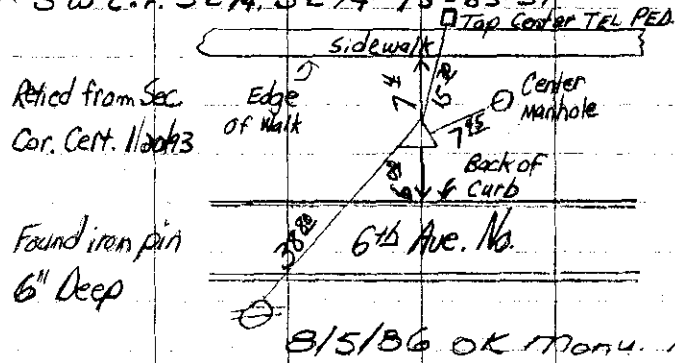 SW Cor. SE¼, SE¼
Top Center TEL PED.
Sidewalk
Retied from Sec.
Cor. Cert. 1/20/93
Edge
of Walk
7⁴
Center
Manhole
7⁸⁵
Back of
Curb
38⁸⁰
6th Ave. No.
Found iron pin
6" Deep
8/5/86 OK Monu.